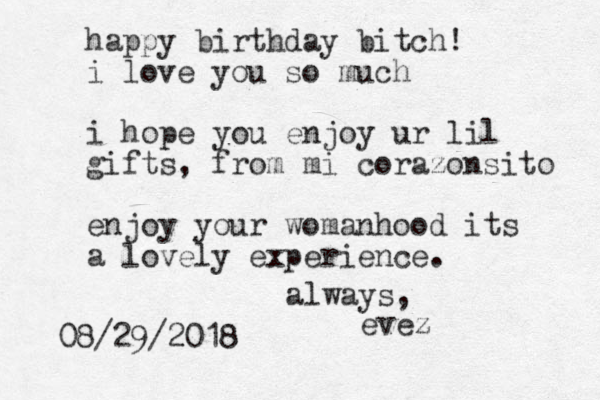 happy birthday bitch!
i love you so much
i hope you enjoy ur lil
gifts, from mi corazonsito
enjoy your womanhood its
a lovely experience.
always,
evez
08/29/2018